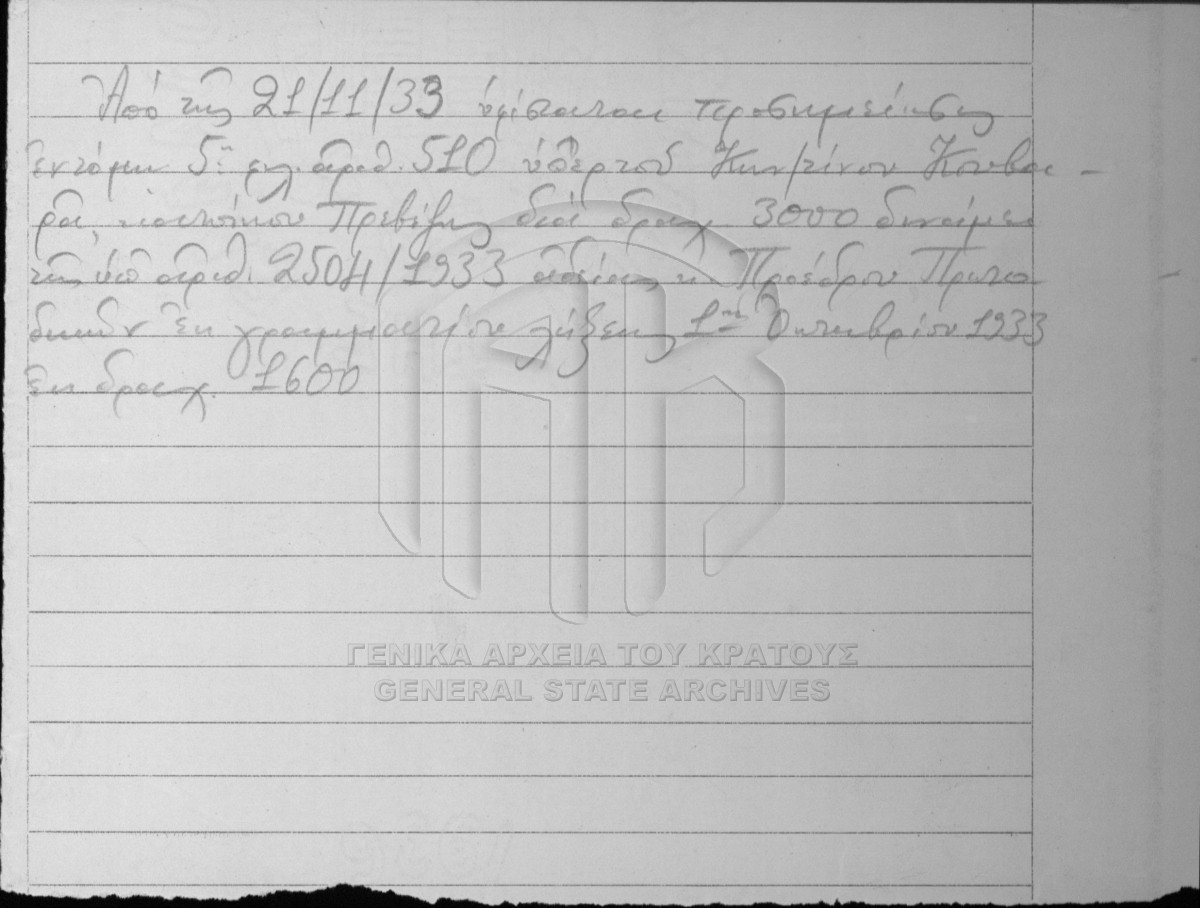 Ἀπό τῆς 21/11/33 ὑφίσταται προσημείωσις
ἐν τόμῳ 5ῳ φυλ. ἀριθ. 510 ὑπέρ τοῦ Κων/τίνου Κουβα-
ρᾶ, κατοίκου Πρεβέζης διά δραχ. 3000 δυνάμει
τῆς ὑπ' ἀριθ. 2504/1933 ἀδείας κ. Προέδρου Πρωτο
δικῶν ἐκ γραμματίου λήξεως 1ης Ὀκτωβρίου 1933
ἐκ δραχ. 1600
ΓΕΝΙΚΑ ΑΡΧΕΙΑ ΤΟΥ ΚΡΑΤΟΥΣ
GENERAL STATE ARCHIVES